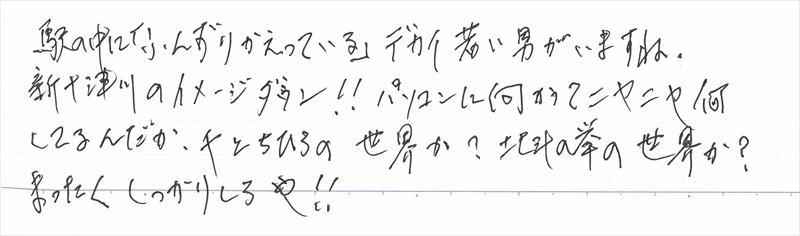 駅の中に「ふんぞりかえっている」デカイ若い男がいますね。
新十津川のイメージダウン!! パソコンに向かってニヤニヤ何
してるんだか、千と千ひろの世界か？北斗の拳の世界か？
まったくしっかりしろや!!